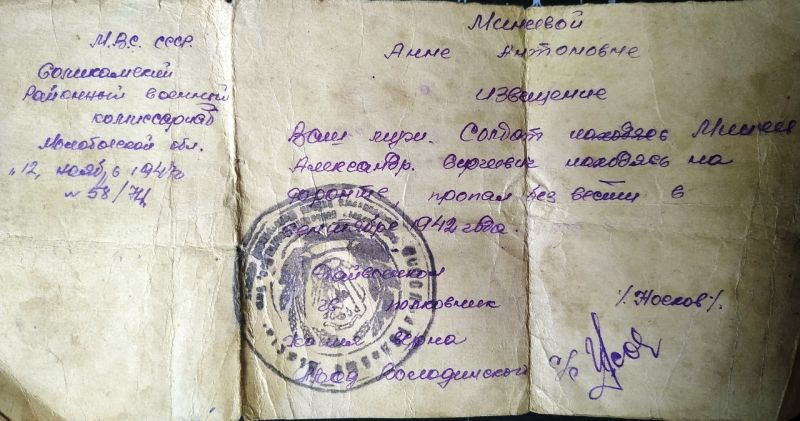 М.В.С. СССР.
Соликамский
Районный военный
комиссариат
Молотовской обл.
"12" ноября 1947г
№ 58/
Минеевой
Анне Антоновне
Извещение
Ваш муж. Солдат находясь Минеев
Александр. Сергеевич находясь на
фронте, пропал без вести в
сентябре 1942 года.
Райвоенком
гв полковник
/Носков/.
Копия верна
Володинский